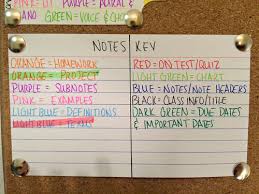 PINK= 
PURPLE= PLURAL &
AND GREEN= VOICE &
NOTES KEY
ORANGE = HOMEWORK
ORANGE = PROJECT
PURPLE = SUBNOTES
PINK = EXAMPLES
LIGHT BLUE = DEFINITIONS
LIGHT BLUE = TERMS
RED = ON TEST/QUIZ
LIGHT GREEN = CHART
BLUE = NOTES/NOTE HEADERS
BLACK = CLASS INFO/TITLE
DARK GREEN = DUE DATES
& IMPORTANT DATES